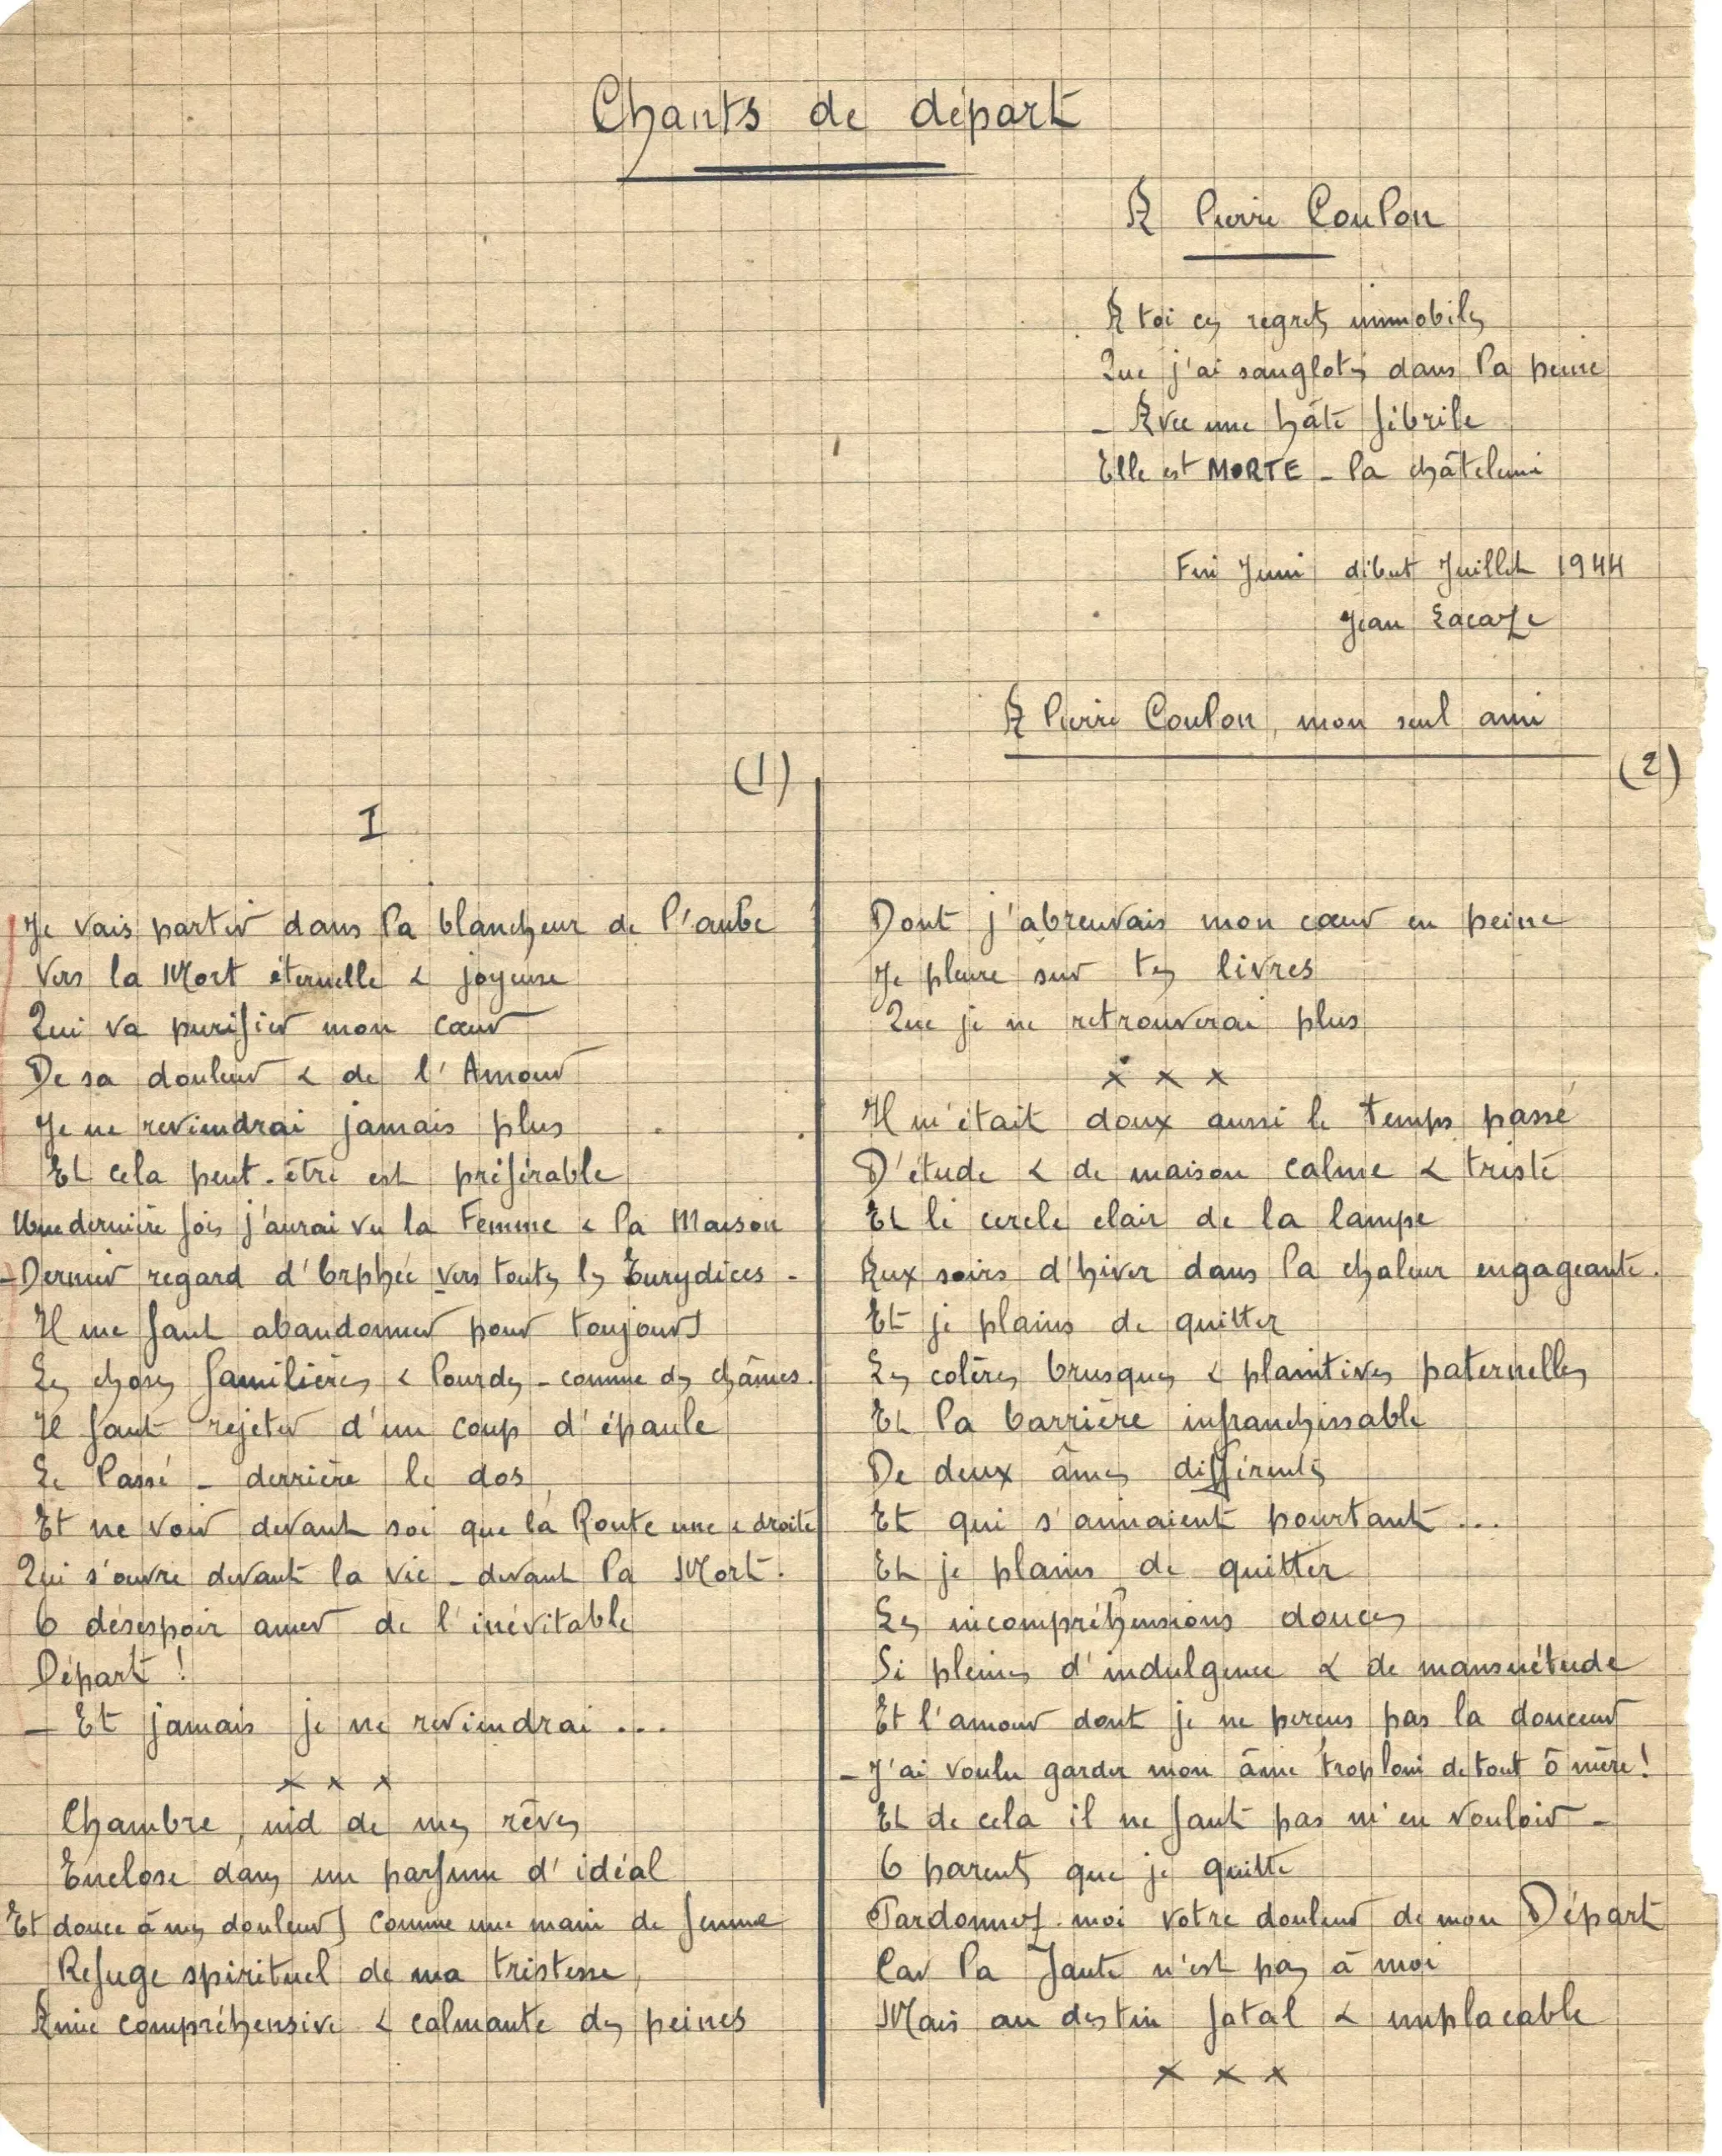 Chants de départ
A Pierre Coulon
A toi ces regrets immobiles
Que j'ai sanglotés dans la peine
- Avec une hâte fébrile
Elle est MORTE - la châtelaine
Fin Juin début Juillet 1944
Jean Lacaze
A Pierre Coulon, mon seul ami
(1)
I
Je vais partir dans la blancheur de l'aube
Vers la Mort éternelle & joyeuse
Qui va purifier mon cœur
De sa douleur & de l'Amour
Je ne reviendrai jamais plus
Et cela peut-être est préférable
Une dernière fois j'aurai vu la Femme & la Maison
- Dernier regard d'Orphée vers toutes les Eurydices -
Il me faut abandonner pour toujours
Les choses familières & lourdes - comme des chaînes.
Il faut rejeter d'un coup d'épaule
Le Passé - derrière le dos,
Et ne voir devant soi que la Route une & droite
Qui s'ouvre devant la vie - devant la Mort.
O désespoir amer de l'inévitable
Départ !
- Et jamais je ne reviendrai ...
x x x
Chambre, nid de mes rêves
Enclose dans un parfum d'idéal
Et douce à mes douleurs comme une main de femme
Refuge spirituel de ma tristesse,
Amie compréhensive & calmante des peines
(2)
Dont j'abreuvais mon cœur en peine
Je pleure sur tes livres
Que je ne retrouverai plus
x x x
Il m'était doux aussi le temps passé
D'étude & de maison calme & triste
Et le cercle clair de la lampe
Aux soirs d'hiver dans la chaleur engageante.
Et je plains de quitter
Les colères brusques & plaintives paternelles
Et la barrière infranchissable
De deux âmes différentes
Et qui s'aimaient pourtant ...
Et je plains de quitter
Les incompréhensions douces
Si pleines d'indulgence & de mansuétude
Et l'amour dont je ne perçus pas la douceur
- J'ai voulu garder mon âme trop loin de tout ô mère !
Et de cela il ne faut pas m'en vouloir -
O parents que je quitte
Pardonnez-moi votre douleur de mon Départ
Car la Faute n'est pas à moi
Mais au destin fatal & implacable
x x x